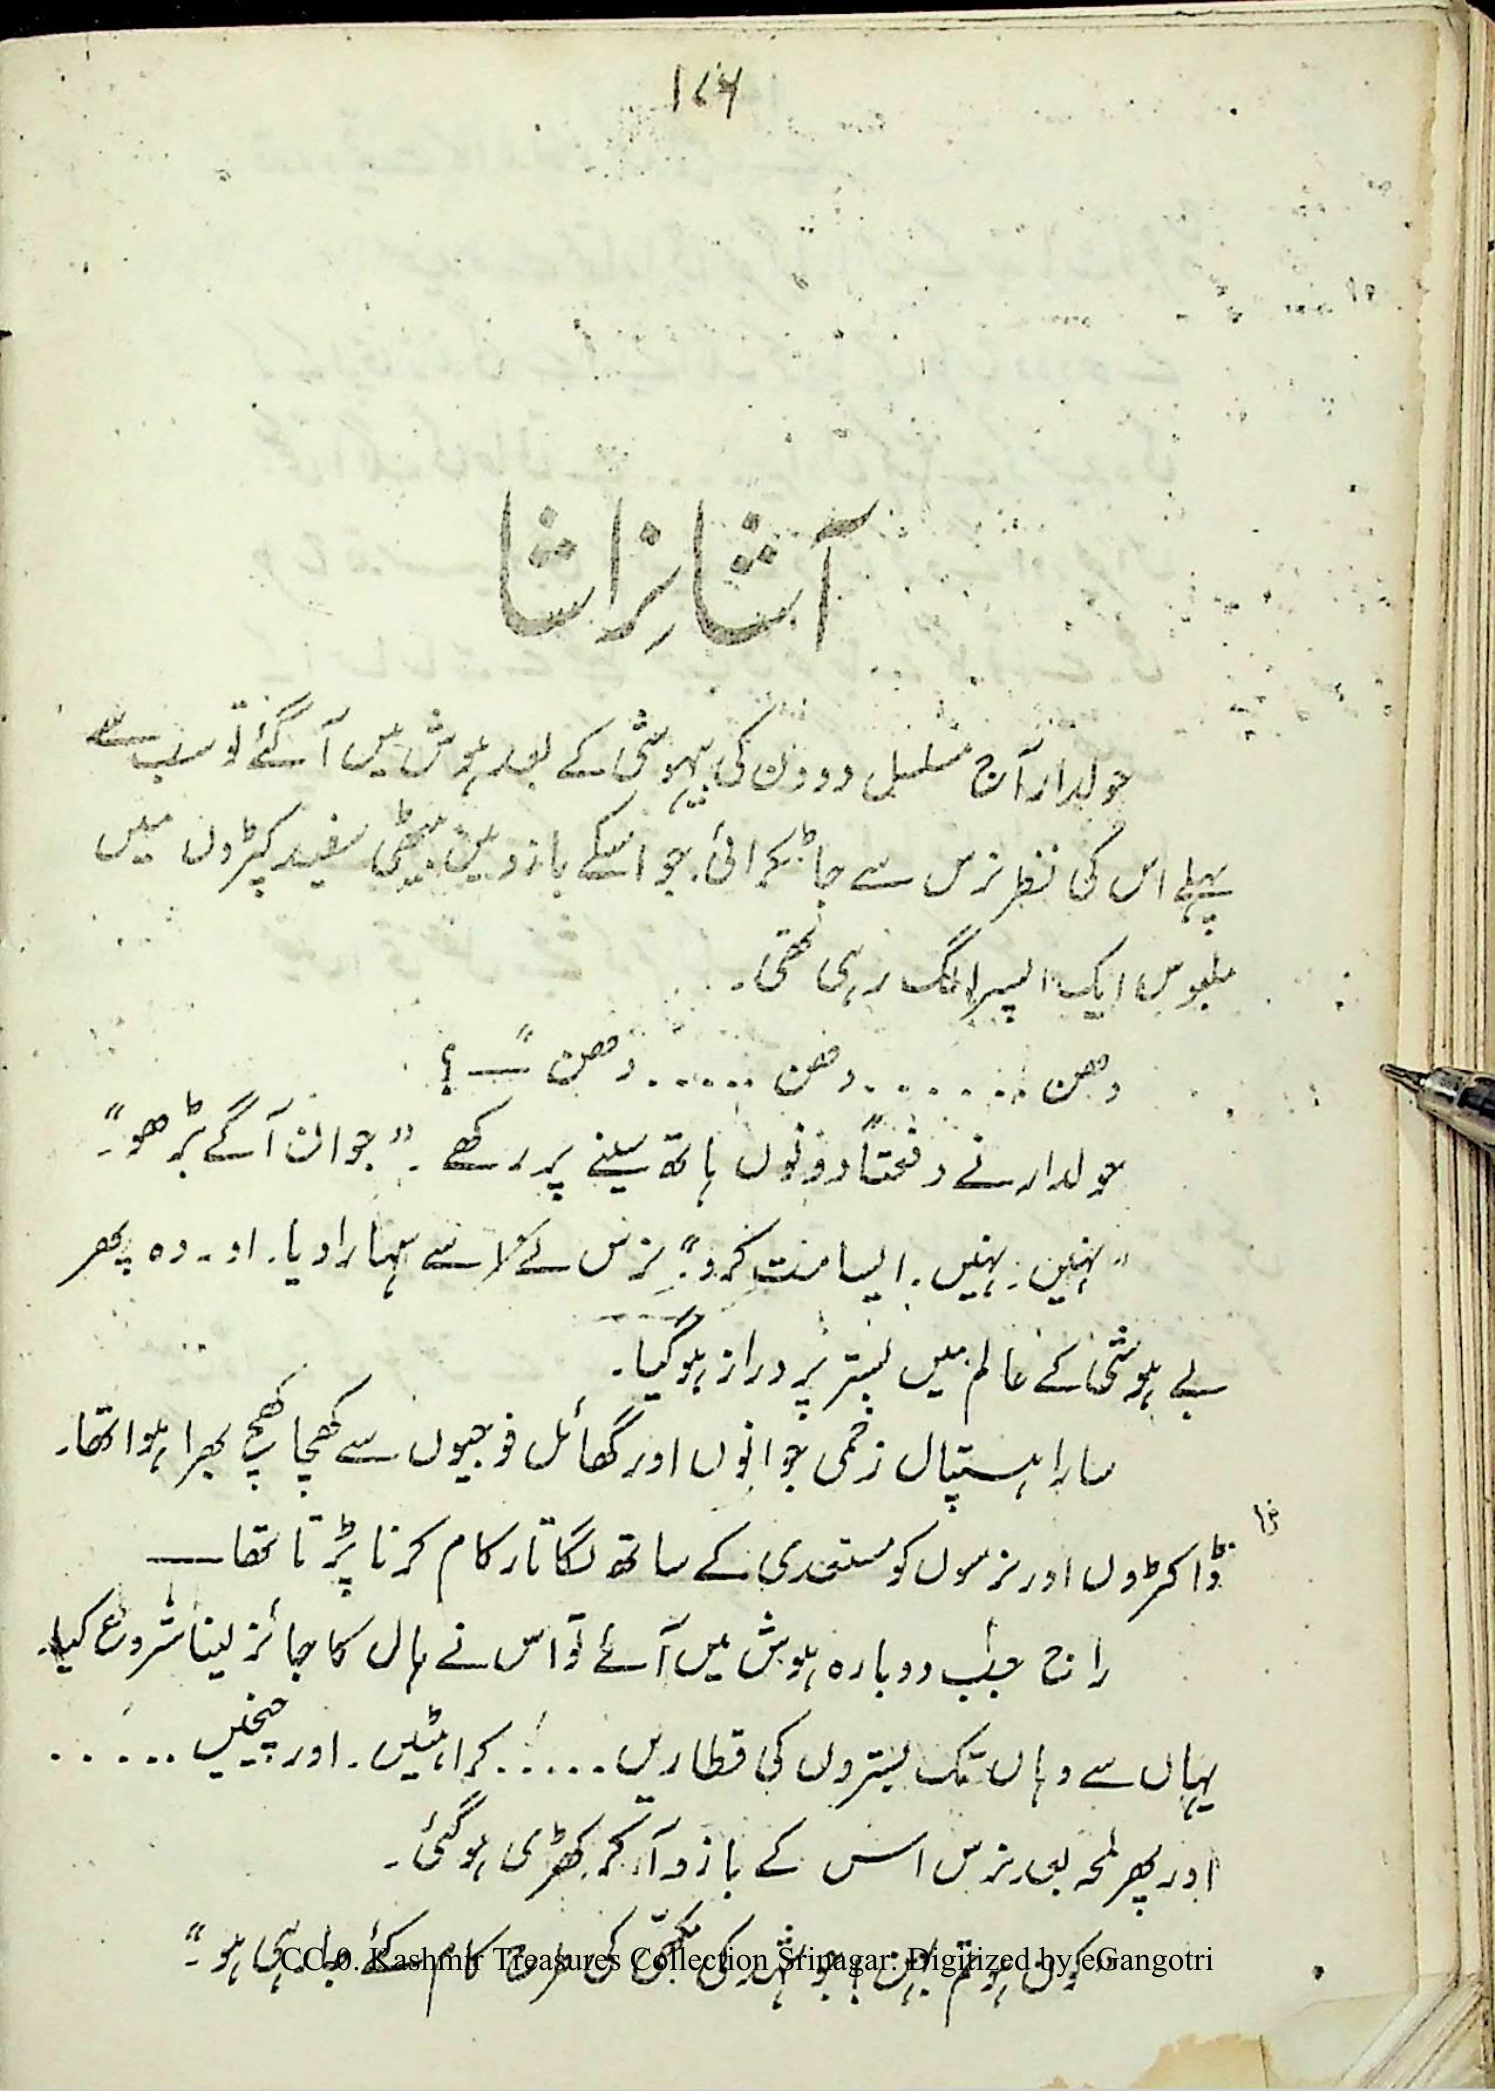 ۱۷۶
آشا نِراشا
حولدار آج مسلسل دو دن کی بیہوشی کے بعد ہوش میں آ گئے تو سب سے
پہلے اس کی نظر نرس سے جا ٹکرائی۔ جو اسکے بازو میں بیٹھی سفید کپڑوں میں
ملبوس ایک اپسرا لگ رہی تھی۔
دھن ....... دھن ..... دھن" — ؟
حولدار نے دفعتاً دونوں ہاتھ سینے پر رکھے۔ "جوان آگے بڑھو"۔
"نہیں۔ نہیں۔ ایسا مت کرو"۔ نرس نے اسے سہارا دیا۔ اور وہ پھر
بے ہوشی کے عالم میں بستر پر دراز ہو گیا۔
سارا ہسپتال زخمی جوانوں اور گھائل فوجیوں سے کھچا کھچ بھرا ہوا تھا۔
ڈاکٹروں اور نرسوں کو مستعدی کے ساتھ لگاتار کام کرنا پڑتا تھا —
جب دوبارہ ہوش میں آئے تو اس نے ہال کا جائزہ لینا شروع کیا۔
یہاں سے وہاں تک بستروں کی قطاریں ..... کراہٹیں۔ اور چیخیں .....
اور پھر لمحہ بعد نرس اس کے بازو آ کر کھڑی ہو گئی۔
"کون ہو تم بہن؟ جو شہد کی مکھی کی طرح کام کئے جا رہی ہو"۔
CC-0. Kashmir Treasures Collection Srinagar. Digitized by eGangotri